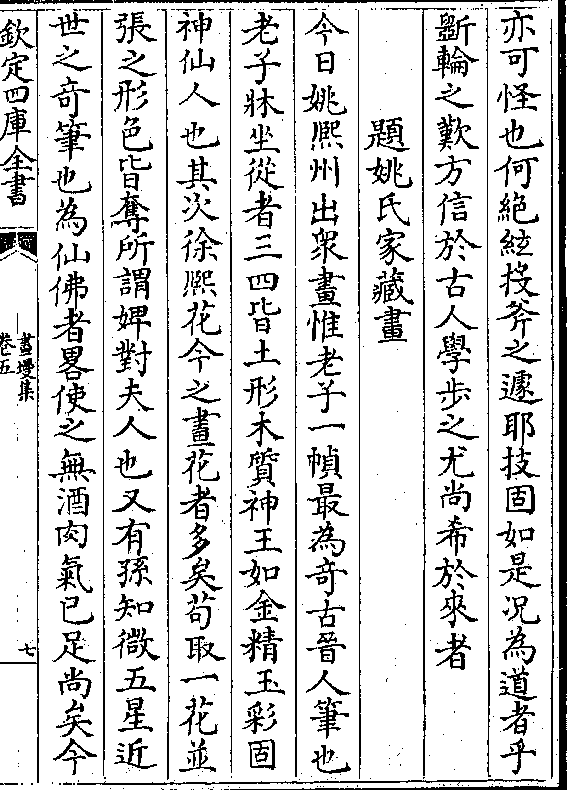 亦可怪也何絶絃投斧之遽耶技固如是况為道者乎
斵輪之歎方信於古人學步之尤尚希於來者
題姚氏家藏畫
今日姚熈州出衆畫惟老子一幀最為竒古晉人筆也
老子牀坐從者三四皆土形木質神王如金精玉彩固
神仙人也其次徐熈花今之畫花者多矣茍取一花並
張之形色皆奪所謂婢對夫人也又有孫知微五星近
世之竒筆也為仙佛者畧使之無酒肉氣已足尚矣今
欽定四庫全書
畫墁集
卷五
七